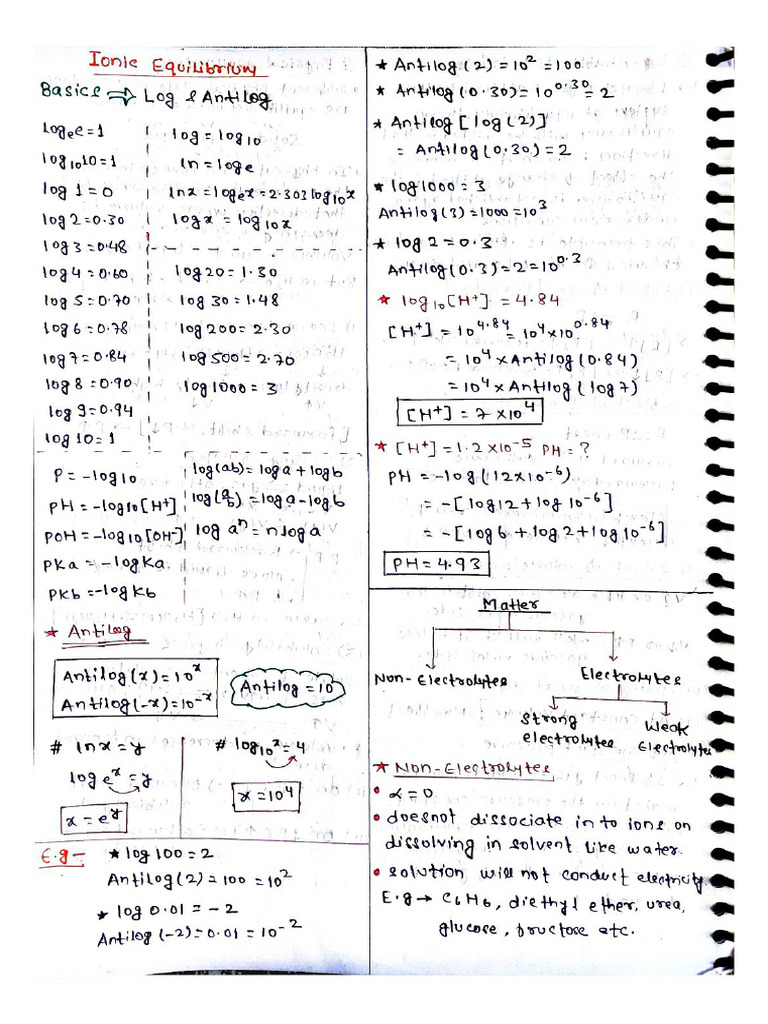 Ionic Equilibrium
Basics ⇒ Log & Antilog
log_e e = 1
log_10 10 = 1
log 1 = 0
log 2 = 0.30
log 3 = 0.48
log 4 = 0.60
log 5 = 0.70
log 6 = 0.78
log 7 = 0.84
log 8 = 0.90
log 9 = 0.94
log 10 = 1
log = log_10
ln = log_e
lnx = log_e x = 2.303 log_10 x
logx = log_10 x
log 20 = 1.30
log 30 = 1.48
log 200 = 2.30
log 500 = 2.70
log 1000 = 3
P = -log_10
PH = -log_10 [H⁺]
POH = -log_10 [OH⁻]
PKa = -log Ka
PKb = -log Kb
log(ab) = loga + logb
log(a/b) = loga - logb
log aⁿ = n loga
★ Antilog
Antilog(x) = 10^x
Antilog(-x) = 10^-x
Antilog = 10
# lnx = y
log_e x = y
x = e^y
# log_10 x = 4
x = 10⁴
E.g - ★ log 100 = 2
Antilog(2) = 100 = 10²
★ log 0.01 = -2
Antilog(-2) = 0.01 = 10^-2
★ Antilog(2) = 10² = 100
★ Antilog(0.30) = 10^0.30 = 2
★ Antilog [log(2)]
= Antilog(0.30) = 2
★ log 1000 = 3
Antilog(3) = 1000 = 10³
★ log 2 = 0.3
Antilog(0.3) = 2 = 10^0.3
★ log_10 [H⁺] = 4.84
[H⁺] = 10^4.84 = 10⁴ × 10^0.84
= 10⁴ × Antilog(0.84)
= 10⁴ × Antilog(log 7)
[H⁺] = 7 × 10⁴
★ [H⁺] = 1.2 × 10^-5 PH = ?
PH = -log(12 × 10^-6)
= -[log 12 + log 10^-6]
= -[log 6 + log 2 + log 10^-6]
PH = 4.93
Matter
Non-Electrolytes Electrolytes
Strong electrolytes
Weak Electrolytes
★ Non-Electrolytes
• α = 0
• doesnot dissociate in to ions on
dissolving in solvent like water.
• solution will not conduct electricity.
E.g → C6H6, diethyl ether, urea,
glucose, fructose etc.